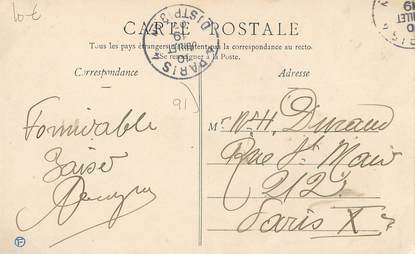 10€
CARTE POSTALE
Tous les pays étrangers n'acceptent pas la correspondance au recto.
Se renseigner à la Poste.
Correspondance
Adresse
PARIS
DISTR
91
Formidable
Baiser
Mr Durand
Rue St Maur
212
Paris X
F